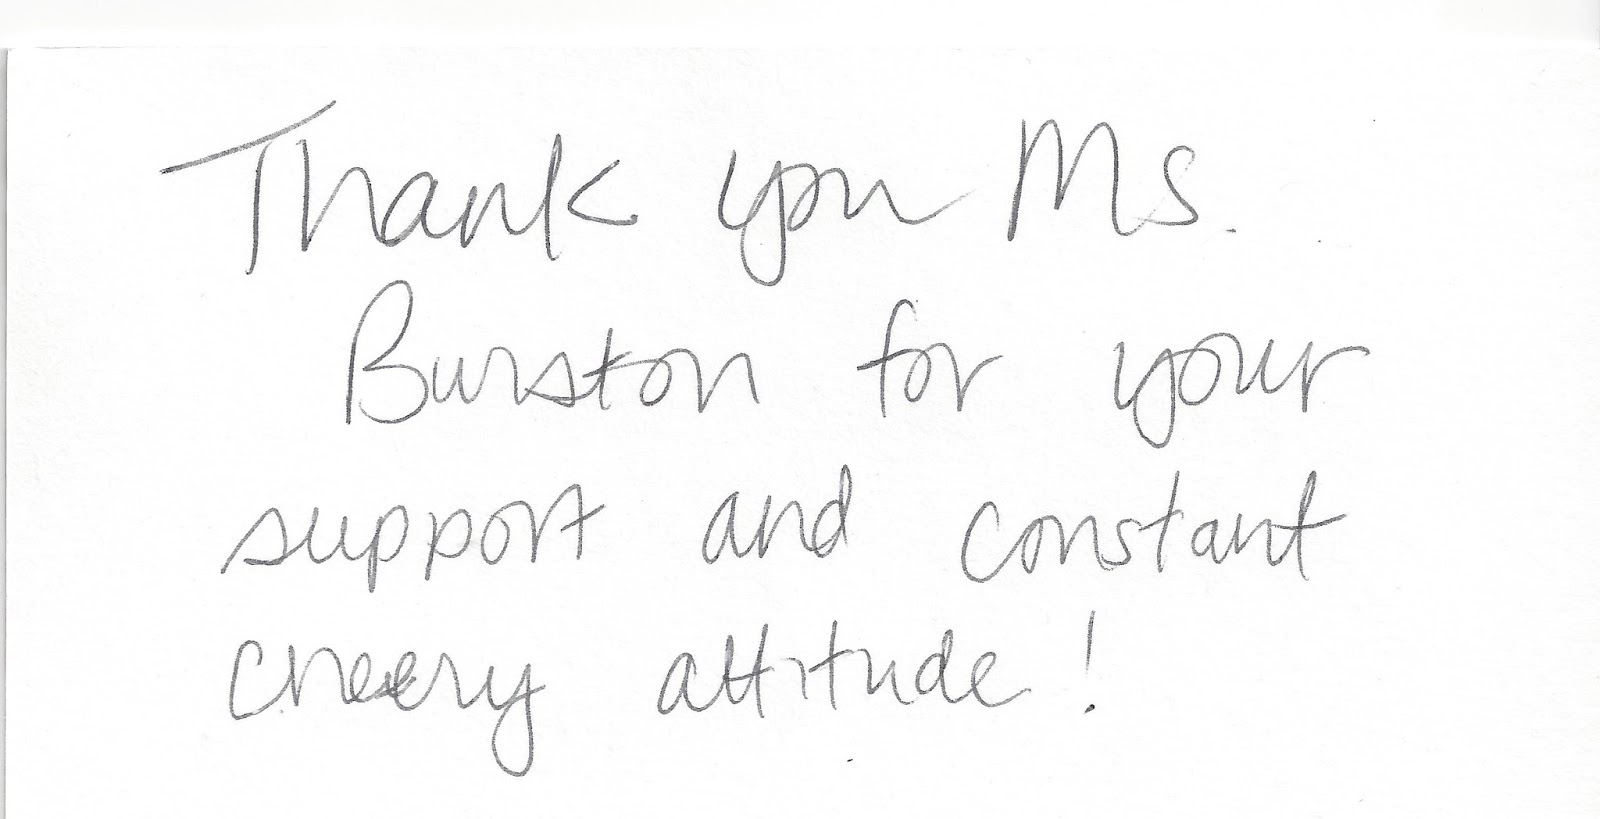 Thank you Ms.
Burston for your
support and constant
cheery attitude!